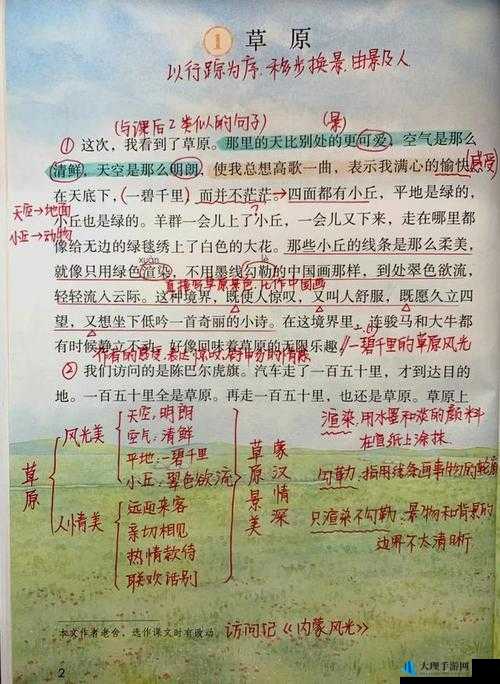 1 草原
以行踪为序,移步换景,由景及人
(与课后2类似的句子) (景)
① 这次,我看到了草原。那里的天比别处的更可爱,空气是那么
清鲜,天空是那么明朗,使我总想高歌一曲,表示我满心的愉快
(感受)
在天底下,(一碧千里)而并不茫茫。四面都有小丘,平地是绿的,
天空→地面
小丘也是绿的。羊群一会儿上了小丘,一会儿又下来,走在哪里都
小丘→动物
像给无边的绿毯绣上了白色的大花。那些小丘的线条是那么柔美,
xuàn lè
就像只用绿色渲染,不用墨线勾勒的中国画那样,到处翠色欲流,
轻轻流入云际。这种境界,既使人惊叹,又叫人舒服,既愿久立四
望,又想坐下低吟一首奇丽的小诗。在这境界里,连骏马和大牛都
有时候静立不动,好像回味着草原的无限乐趣。
一碧千里的草原风光
② 我们访问的是陈巴尔虎旗。汽车走了一百五十里,才到达目的
地。一百五十里全是草原。再走一百五十里,也还是草原。草原上
草原
风光美
天空:明朗
空气:清鲜
平地:一碧千里
小丘:翠色欲流
人情美
远迎来客
亲切相见
热情款待
联欢话别
草原景美
蒙汉情深
渲染:用水墨和淡的颜料
在宣纸上涂抹
勾勒:指用线条画事物的轮廓
只渲染不勾勒:景物和背景的
边界不太清晰
本文作者老舍,选作课文时有改动。
访问记《内蒙风光》
2
大理手游网